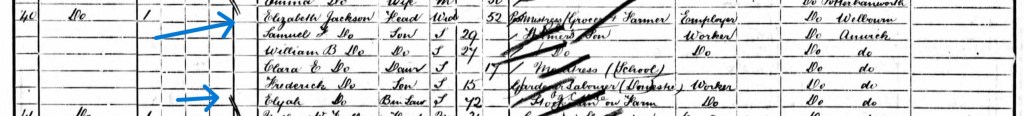 Emma Do Wife M
40 Do 1 Elizabeth Jackson Head Wid 52 Grocer & Farmer Employer Do Welbourn
Samuel J Do Son S 29 Farmer's Son Worker Do Anwick
William B Do Do S 27 Do Do Do do
Clara E Do Daur S 17 (School) Do do
Frederick Do Son S 15 Gardener Labourer (Domestic) Worker Do do
Elijah Do Bro Law S 42 on Farm Do Do do
41 Do 1